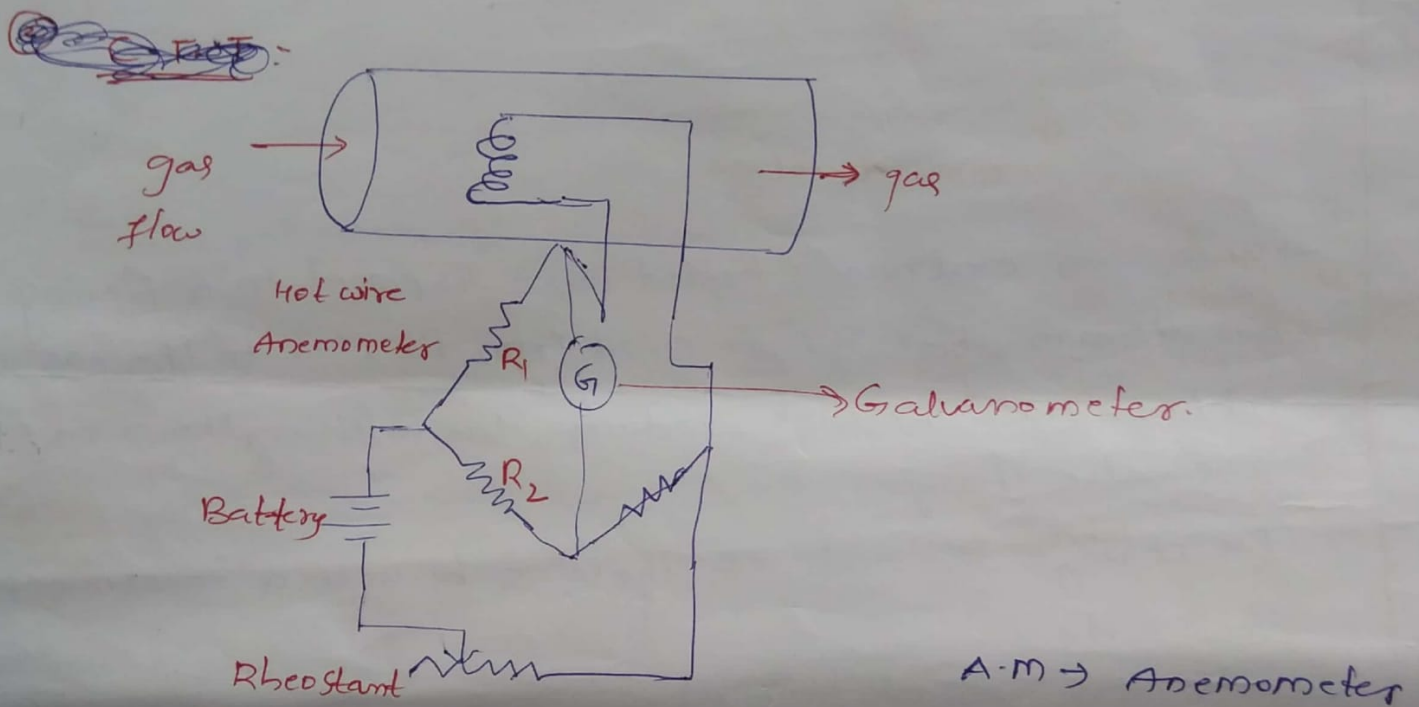 gas
flow
gas
Hot wire
Anemometer
R1
G
Galvanometer.
R2
Battery
Rheostant
A.M → Anemometer